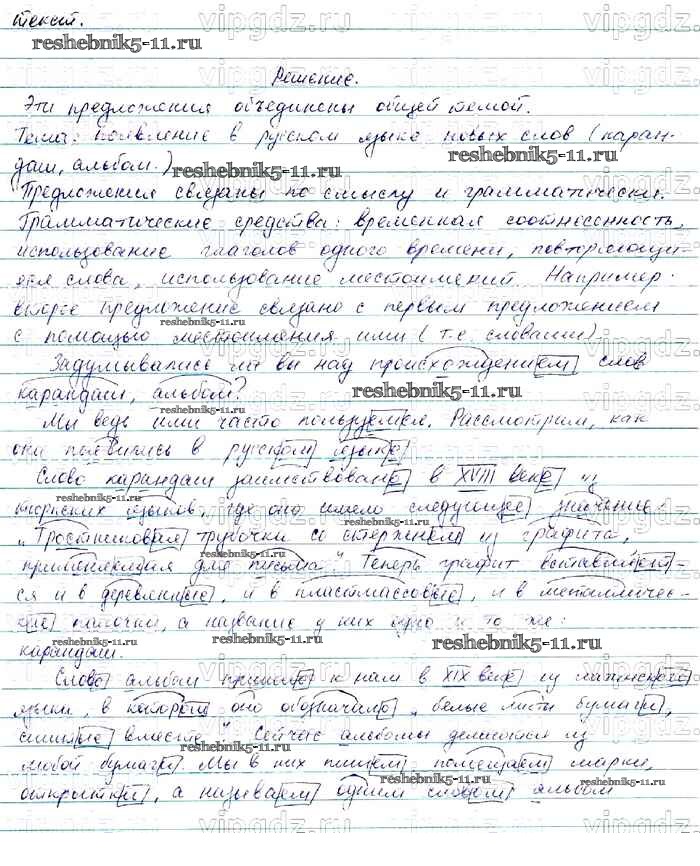 текст.
Решение.
Эти предложения объединены общей темой.
Тема: появление в русском языке новых слов (каран-
даш, альбом.)
Предложения связаны по смыслу и грамматически.
Грамматические средства: временная соотнесенность,
использование глаголов одного времени, повторяющи-
еся слова, использование местоимений. Например:
второе предложение связано с первым предложением
с помощью местоимения ими (т.е. словами).
Задумывались ли вы над происхождением слов
карандаш, альбом?
Мы ведь ими часто пользуемся. Рассмотрим, как
они появились в русском языке.
Слово карандаш заимствовано в XVIII веке из
тюркских языков, где оно имело следующее значение:
„Тростниковая трубочка со стержнем из графита,
применяемая для письма". Теперь графит вставляет-
ся и в деревянные, и в пластмассовые, и в металличес-
кие палочки, а название у них одно и то же:
карандаш.
Слово альбом пришло к нам в XIX веке из латинского
языка, в котором оно обозначало „белые листы бумаги,
сшитые вместе". Сейчас альбомы делаются из
любой бумаги. Мы в них пишем, помещаем марки,
открытки, а называем одним словом альбом
vipgdz.ru
reshebnik5-11.ru